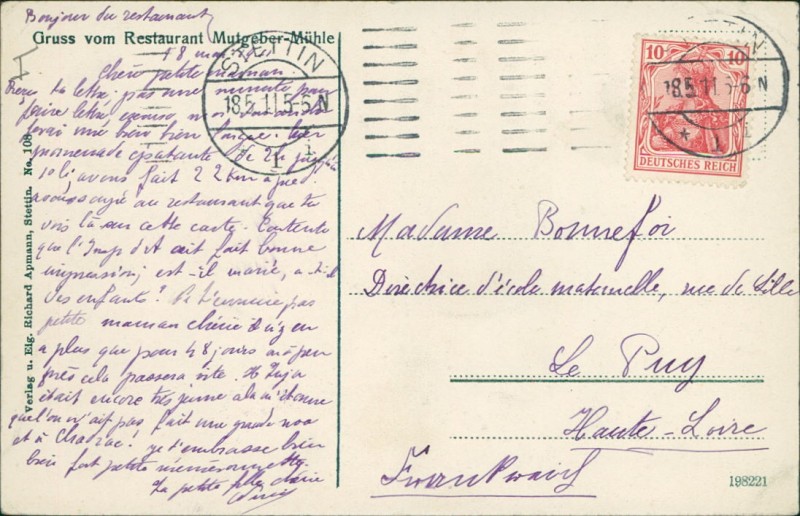 Bonjour du restaurant
Gruss vom Restaurant Mutgeber-Mühle
18 mai
Chère petite maman
Reçu ta lettre; pas une minute pour
faire lettre,
ferai une bien bien longue. Hier
promenade épatante de 2h jusqu'à
10h; avons fait 22 km à pied.
au restaurant que tu
vois là sur cette carte. Contente
que l'Insp d'A ait fait bonne
impression; est-il marié, a-t-il
des enfants? Ne t'ennuie pas
petite maman chérie il n'y en
a plus que pour 48 jours à peu
près cela passera vite.
était encore très jeune
que l'on n'ait pas fait une grande noce
et à Chadrac! je t'embrasse bien
bien fort petite
Ta petite fille chérie
Verlag u. Eig. Richard Apmann, Stettin. No. 108
STETTIN
18.5.11.5-6N
* 1 i
10 10
DEUTSCHES REICH
STETTIN
18.5.11.5-6N
* 1 i
Madame Bonnefoi
Directrice d'école maternelle, rue de Lille
Le Puy
Haute-Loire
Frankreich
198221